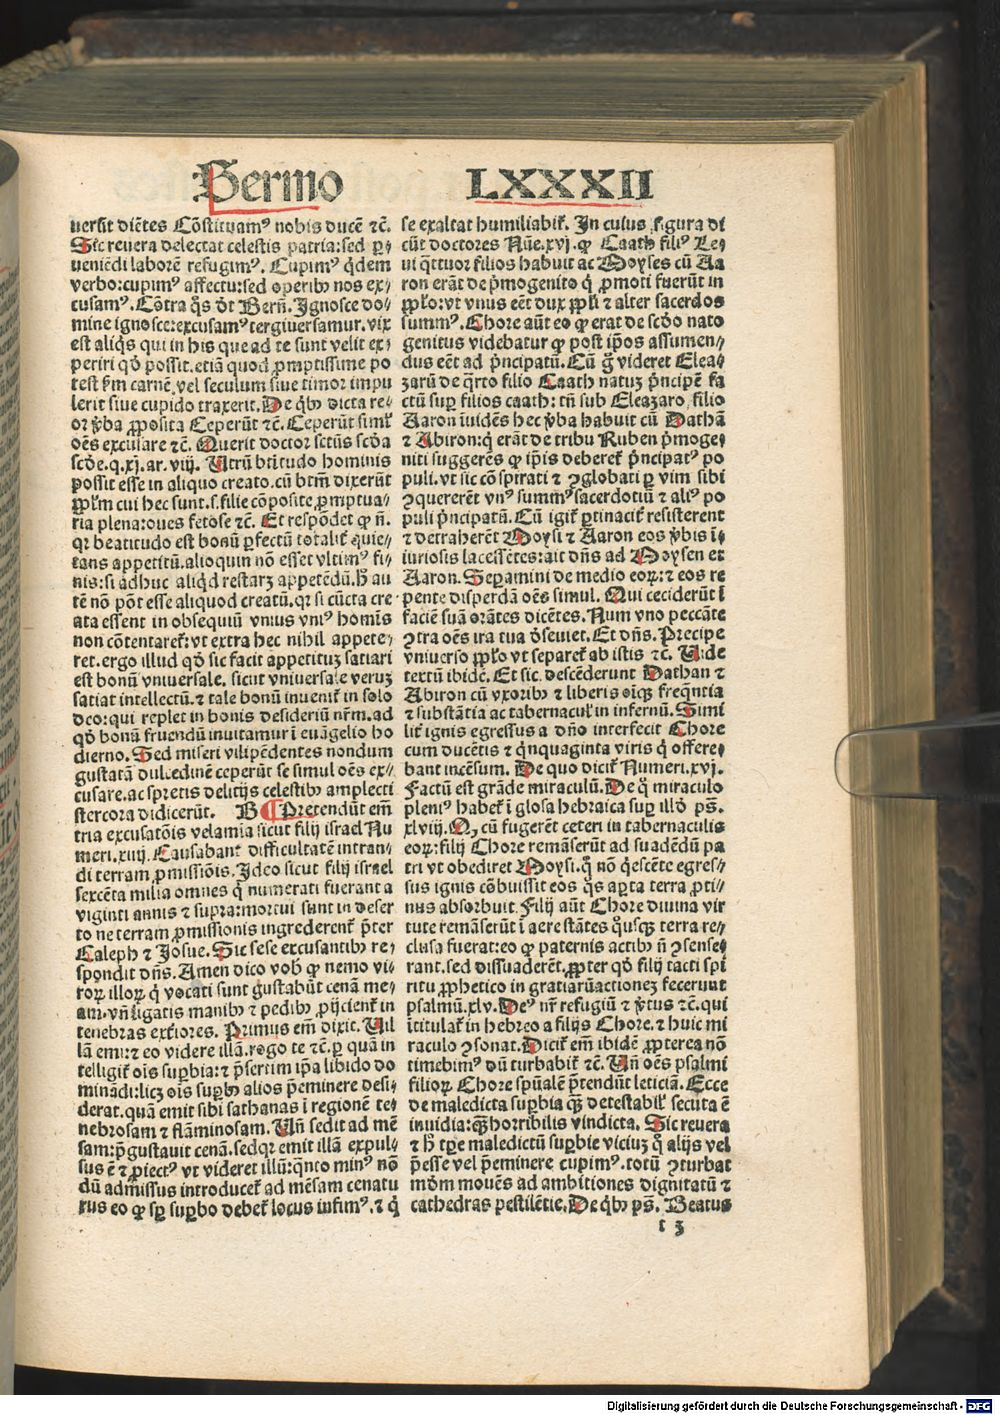 Sermo LXXXII
uersūt diētes Cōstituam⁹ nobis ducē ⁊c̄.
Sic reuera delectat celestis patria: sed ꝑ⸗
ueniēdi laborē refugim⁹. Cupim⁹ q̇dem
verbo: cupim⁹ affectu: sed operibꝫ nos ex⸗
cusam⁹. Cōtra q̇s dt̄ Bern̄. Ignosce do⸗
mine ignosce: excusam⁹ tergiuersamur. vix
est aliq̇s qui in his que ad te sunt velit ex⸗
periri qḋ possit. etiā quod ꝓmptissime po
test ẜm carnē, vel seculum siue timor impu
lerit siue cupido traxerit. De q̇bꝫ dicta re⸗
or v̄ba ꝓposita Ceperūt ⁊c̄. Ceperūt siml̕
oēs excusare ⁊c̄. Querit doctor sctūs scḋa
scḋe. q. xj. ar. viij. Utrū btītudo hominis
possit esse in aliquo creato. cū btm̄ dixerūt
ꝓpl̕m cui hec sunt. s. filie cōposite ꝓmptua⸗
ria plena: oues fetose ⁊c̄. Et respōdet ꝙ n̄.
qꝛ beatitudo est bonū ꝑfectū totalit̕ quie⸗
tans appetitū. alioquin nō esset vltim⁹ fi⸗
nis: si adhuc aliqḋ restarꝫ appetēdū. h̄ au
tē nō pōt esse aliquod creatū. qꝛ si cūcta cre
ata essent in obsequiū vnius vni⁹ homīs
non cōtentaret̕: vt extra hec nihil appete⸗
ret. ergo illud qḋ sic facit appetituꝫ satiari
est bonū vniuersale. sicut vniuersale veruꝫ
satiat intellectū. ⁊ tale bonū inuenit̕ in solo
deo: qui replet in bonis desideriū nr̄m. ad
qḋ bonū fruendū inuitamur ī euāgelio ho
dierno. Sed miseri vilipēdentes nondum
gustatā dulcedinē ceperūt se simul oēs ex⸗
cusare. ac spretis delitijs celestibꝫ amplecti
stercora didicerūt. B ¶ Pretendūt em̄
tria excusatōis velamia sicut filij israel Nu
meri. xiiij. Causabant difficultatē intran⸗
di terram ꝓmissiōis. Ideo sicut filij israel
sexcēta milia omnes q̇ numerati fuerant a
viginti annis ⁊ supra: mortui sunt in deser
to ne terram ꝓmissionis ingrederent̕ p̄ter
Caleph ⁊ Iosue. Sic sese excusantibꝫ re⸗
spondit dn̄s. Amen dico vob̕ ꝙ nemo vi⸗
roꝝ illoꝝ q̇ vocati sunt gustabūt cenā me⸗
am. vn̄ ligatis manibꝫ ⁊ pedibꝫ ꝓijcient̕ in
tenebras ext̕iores. Primus em̄ dixit. Uil
lā emi: ⁊ eo videre illā. rogo te ⁊c̄. ꝑ quā in
telligit̕ oīs suꝑbia: ⁊ p̄sertim ip̄a libido do
minādi: licꝫ oīs suꝑbꝰ alios p̄eminere desi⸗
derat. quā emit sibi sathanas ī regionē te⸗
nebrosam ⁊ flāminosam. Un̄ sedit ad mē
sam: p̄gustauit cenā. sedqꝛ emit illā expul⸗
sus ē ⁊ ꝓiect⁹ vt videret illū: q̇nto min⁹ nō
dū admissus introducet̕ ad mēsam cenatu
rus eo ꝙ sꝑ suꝑbo debet̕ locus infim⁹. ⁊ q̇
se exaltat humiliabit̕. In cuius figura di
cūt doctores Nūe. xvj. ꝙ Caath fili⁹ Le⸗
ui q̇ttuor filios habuit ac Moyses cū Aa
ron erāt de p̄mogenito q̇ ꝓmoti fuerūt in
ꝓpl̕o: vt vnus eēt dux ꝓpl̕i ⁊ alter sacerdos
summ⁹. Chore aūt eo ꝙ erat de scḋo nato
genitus videbatur ꝙ post ip̄os assumen⸗
dus eēt ad p̄ncipatū. Cū g̊ videret Elea⸗
zarū de q̇rto filio Caath natuꝫ p̄ncipē fa
ctū suꝑ filios caath: tn̄ sub Eleazaro filio
Aaron īuidēs hec v̄ba habuit cū Dathā
⁊ Abiron: q̇ erāt de tribu Ruben p̄moge⸗
niti suggerēs ꝙ ip̄is deberet̕ p̄ncipat⁹ po
puli. vt sic cōspirati ⁊ ꝯglobati ꝑ vim sibi
ꝯquererēt vn⁹ summ⁹ sacerdotiū ⁊ ali⁹ po
puli p̄ncipatū. Cū igit̕ ꝑtinacit̕ resisterent
⁊ detraherēt Moysi ⁊ Aaron eos v̄bis ī⸗
iuriosis lacessētes: ait dn̄s ad Moysen et
Aaron. Seꝑamini de medio eoꝝ: ⁊ eos re
pente disperdā oēs simul. Qui ceciderūt ī
faciē suā orātes dicētes. Num vno peccāte
ꝯtra oēs ira tua d̕seuiet. Et dn̄s. Precipe
vniuerso ꝓpl̕o vt separet̕ ab istis ⁊c̄. Uide
textū ibidē. Et sic descēderunt Dathan ⁊
Abiron cū vxoribꝫ ⁊ liberis oīqꝫ freq̇ntia
⁊ substātia ac tabernacul̕ in infernū. Simi
lit̕ ignis egressus a dn̄o interfecit Chore
cum ducētis ⁊ q̇nquaginta viris q̇ offere⸗
bant incēsum. De quo dicit̕ Numeri. xvj.
Factū est grāde miraculū. De q̊ miraculo
pleni⁹ habet̕ ī glosa hebraica suꝑ illḋ ps̄.
xlviij. Qꝫ cū fugerēt ceteri in tabernaculis
eoꝝ: filij Chore remāserūt ad suadēdū pa
tri vt obediret Moysi. q̊ nō q̇escēte egres⸗
sus ignis cōbuissit eos q̊s aꝑta terra ꝓti⸗
nus absorbuit. Filij aūt Chore diuina vir
tute remāserūt ī aere stātes q̊usqꝫ terra re⸗
clusa fuerat: eo ꝙ paternis actibꝫ n̄ ꝯsense⸗
rant. sed dissuaderēt. ꝓpter qḋ filij tacti spi
ritu ꝓphetico in gratiarū actionez fecerunt
psalmū. xlv. De⁹ nr̄ refugiū ⁊ v̄tus ⁊c̄. qui
ītitulat̕ in hebreo a filijs Chore. ⁊ huic mi
raculo ꝯsonat. Dicit̕ em̄ ibidē ꝓpterea nō
timebim⁹ dū turbabit̕ ⁊c̄. Un̄ oēs psalmi
filioꝝ Chore spūalē p̄tendūt leticiā. Ecce
de maledicta suꝑbia qꝫ̄ detestabil̕ secuta ē
inuidia: qꝫ̄ horribilis vindicta. Sic reuera
⁊ h̄ tꝑe maledictū suꝑbie viciuꝫ q̊ alijs vel
p̄esse vel p̄eminere cupim⁹. totū ꝯturbat
mḋm mouēs ad ambitiones dignitatū ⁊
cathedras pestilētie. De q̇bꝫ ps̄. Beatus
t 3
Digitalisierung gefördert durch die Deutsche Forschungsgemeinschaft - DFG